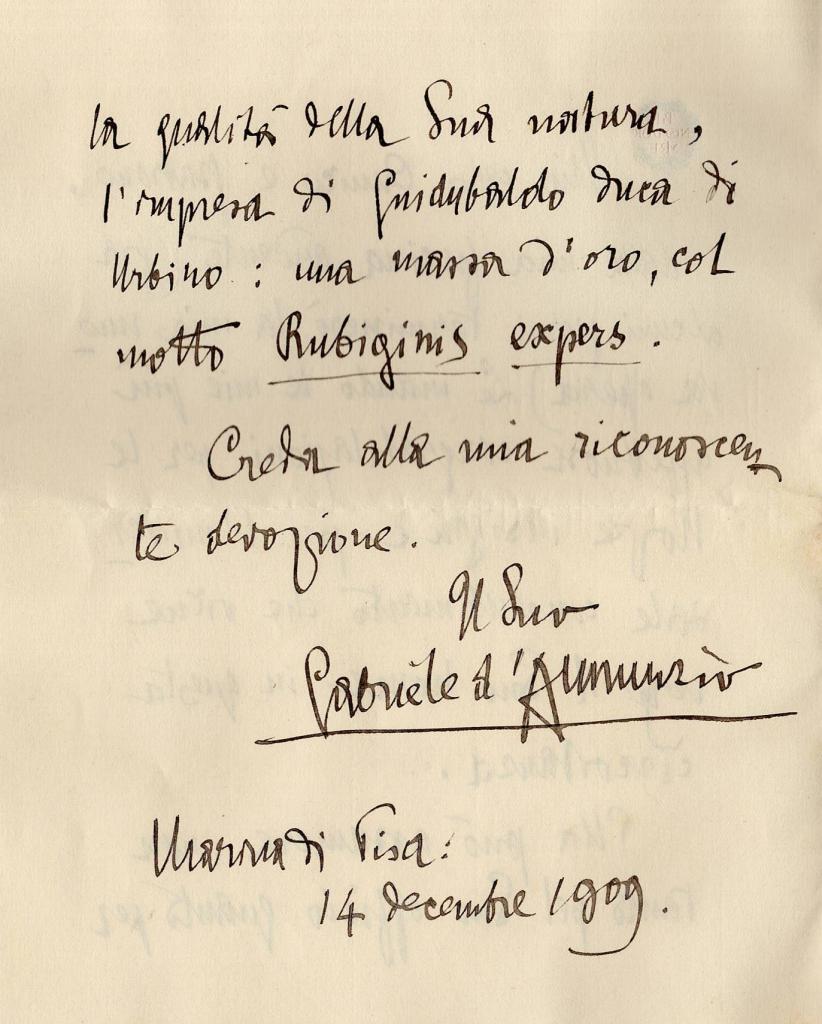 la qualità della Sua natura,
l'impresa di Guidubaldo duca di
Urbino: una massa d'oro, col
motto Rubiginis expers.
Creda alla mia riconoscen
te devozione.
Il Suo
Gabriele d'Annunzio
Marina di Pisa:
14 decembre 1909.